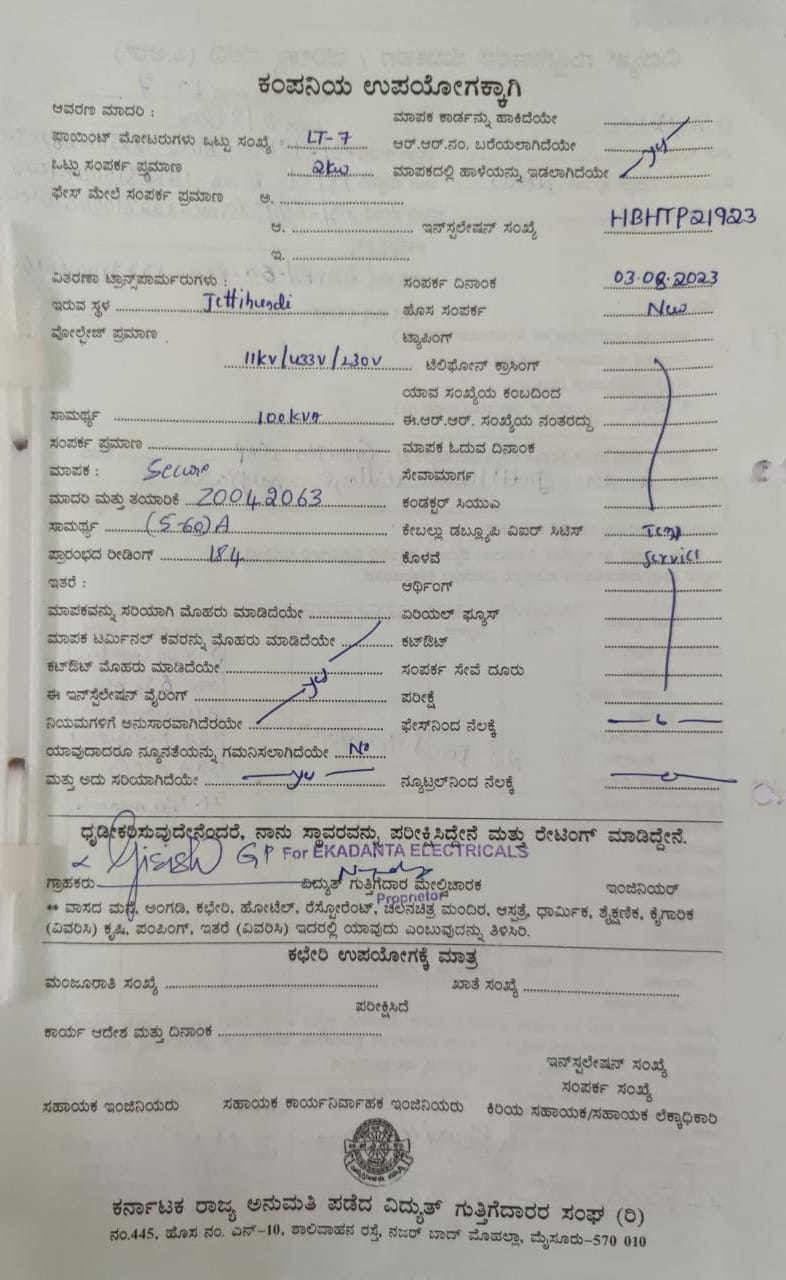 ಕಂಪನಿಯ ಉಪಯೋಗಕ್ಕಾಗಿ
ಆವರಣ ಮಾದರಿ : ಮಾಪಕ ಕಾರ್ಡನ್ನು ಹಾಕಿದೆಯೇ
ಪಾಯಿಂಟ್ ಮೋಟರುಗಳು ಒಟ್ಟು ಸಂಖ್ಯೆ LT-7 ಆರ್.ಆರ್.ನಂ. ಬರೆಯಲಾಗಿದೆಯೇ
ಒಟ್ಟು ಸಂಪರ್ಕ ಪ್ರಮಾಣ 2kw ಮಾಪಕದಲ್ಲಿ ಹಾಳೆಯನ್ನು ಇಡಲಾಗಿದೆಯೇ yes
ಫೇಸ್ ಮೇಲೆ ಸಂಪರ್ಕ ಪ್ರಮಾಣ ಅ.
ಆ. ಇನ್‌ಸ್ಪಲೇಷನ್ ಸಂಖ್ಯೆ HBHTP21923
ಇ.
ವಿತರಣಾ ಟ್ರಾನ್ಸ್‌ಪಾರ್ಮರುಗಳು : ಸಂಪರ್ಕ ದಿನಾಂಕ 03.08.2023
ಇರುವ ಸ್ಥಳ Jettihundi ಹೊಸ ಸಂಪರ್ಕ New
ವೋಲ್ಟೇಜ್ ಪ್ರಮಾಣ ಟ್ಯಾಪಿಂಗ್
11kv/433v/230v ಟೆಲಿಫೋನ್ ಕ್ರಾಸಿಂಗ್
ಯಾವ ಸಂಖ್ಯೆಯ ಕಂಬದಿಂದ
ಸಾಮರ್ಥ್ಯ 100kVA ಈ.ಆರ್.ಆರ್. ಸಂಖ್ಯೆಯ ನಂತರದ್ದು
ಸಂಪರ್ಕ ಪ್ರಮಾಣ ಮಾಪಕ ಓದುವ ದಿನಾಂಕ
ಮಾಪಕ : Secure ಸೇವಾಮಾರ್ಗ
ಮಾದರಿ ಮತ್ತು ತಯಾರಿಕೆ 20042063 ಕಂಡಕ್ಟರ್ ಸಿಯುಎ
ಸಾಮರ್ಥ್ಯ (5-60)A ಕೇಬಲ್ಲು ಡಬ್ಲ್ಯೂಪಿ ವಿಐರ್ ಸಿಟಿಸ್ Temp
ಪ್ರಾರಂಭದ ರೀಡಿಂಗ್ 184 ಕೊಳವೆ Service
ಇತರೆ : ಆರ್ಥಿಂಗ್
ಮಾಪಕವನ್ನು ಸರಿಯಾಗಿ ಮೊಹರು ಮಾಡಿದೆಯೇ ಏರಿಯಲ್ ಫ್ಯೂಸ್
ಮಾಪಕ ಟರ್ಮಿನಲ್ ಕವರನ್ನು ಮೊಹರು ಮಾಡಿದೆಯೇ ಕಟ್‌ಔಟ್
ಕಟ್‌ಔಟ್ ಮೊಹರು ಮಾಡಿದೆಯೇ ಸಂಪರ್ಕ ಸೇವೆ ದೂರು
ಈ ಇನ್‌ಸ್ಟೆಲೇಷನ್ ವೈರಿಂಗ್ yes ಪರೀಕ್ಷೆ
ನಿಯಮಗಳಿಗೆ ಅನುಸಾರವಾಗಿದೆರಯೇ ಫೇಸ್‌ನಿಂದ ನೆಲಕ್ಕೆ
ಯಾವುದಾದರೂ ನ್ಯೂನತೆಯನ್ನು ಗಮನಿಸಲಾಗಿದೆಯೇ No
ಮತ್ತು ಅದು ಸರಿಯಾಗಿದೆಯೇ yes ನ್ಯೂಟ್ರಲ್‌ನಿಂದ ನೆಲಕ್ಕೆ
ಧೃಡೀಕರಿಸುವುದೇನೆಂದರೆ, ನಾನು ಸ್ಥಾವರವನ್ನು ಪರೀಕ್ಷಿಸಿದ್ದೇನೆ ಮತ್ತು ರೇಟಿಂಗ್ ಮಾಡಿದ್ದೇನೆ.
Girish GP For EKADANTA ELECTRICALS
ಗ್ರಾಹಕರು ವಿದ್ಯುತ್ ಗುತ್ತಿಗೆದಾರ ಮೇಲ್ವಿಚಾರಕ ಇಂಜಿನಿಯರ್
Proprietor
** ವಾಸದ ಮನೆ, ಅಂಗಡಿ, ಕಛೇರಿ, ಹೋಟೆಲ್, ರೆಸ್ಟೋರೆಂಟ್, ಚಲನಚಿತ್ರ ಮಂದಿರ, ಆಸ್ಪತ್ರೆ, ಧಾರ್ಮಿಕ, ಶೈಕ್ಷಣಿಕ, ಕೈಗಾರಿಕ
(ವಿವರಿಸಿ) ಕೃಷಿ, ಪಂಪಿಂಗ್, ಇತರೆ (ವಿವರಿಸಿ) ಇದರಲ್ಲಿ ಯಾವುದು ಎಂಬುವುದನ್ನು ತಿಳಿಸಿರಿ.
ಕಛೇರಿ ಉಪಯೋಗಕ್ಕೆ ಮಾತ್ರ
ಮಂಜೂರಾತಿ ಸಂಖ್ಯೆ ಖಾತೆ ಸಂಖ್ಯೆ
ಪರೀಕ್ಷಿಸಿದೆ
ಕಾರ್ಯ ಆದೇಶ ಮತ್ತು ದಿನಾಂಕ
ಇನ್‌ಸ್ಪಲೇಷನ್ ಸಂಖ್ಯೆ
ಸಂಪರ್ಕ ಸಂಖ್ಯೆ
ಸಹಾಯಕ ಇಂಜಿನಿಯರು ಸಹಾಯಕ ಕಾರ್ಯನಿರ್ವಾಹಕ ಇಂಜಿನಿಯರು ಕಿರಿಯ ಸಹಾಯಕ/ಸಹಾಯಕ ಲೆಕ್ಕಾಧಿಕಾರಿ
ಕರ್ನಾಟಕ ರಾಜ್ಯ ಅನುಮತಿ ಪಡೆದ ವಿದ್ಯುತ್ ಗುತ್ತಿಗೆದಾರರ ಸಂಘ (ರಿ)
ನಂ.445, ಹೊಸ ನಂ. ಎನ್-10, ಶಾಲಿವಾಹನ ರಸ್ತೆ, ನಜರ್ ಬಾದ್ ಮೊಹಲ್ಲಾ, ಮೈಸೂರು-570 010